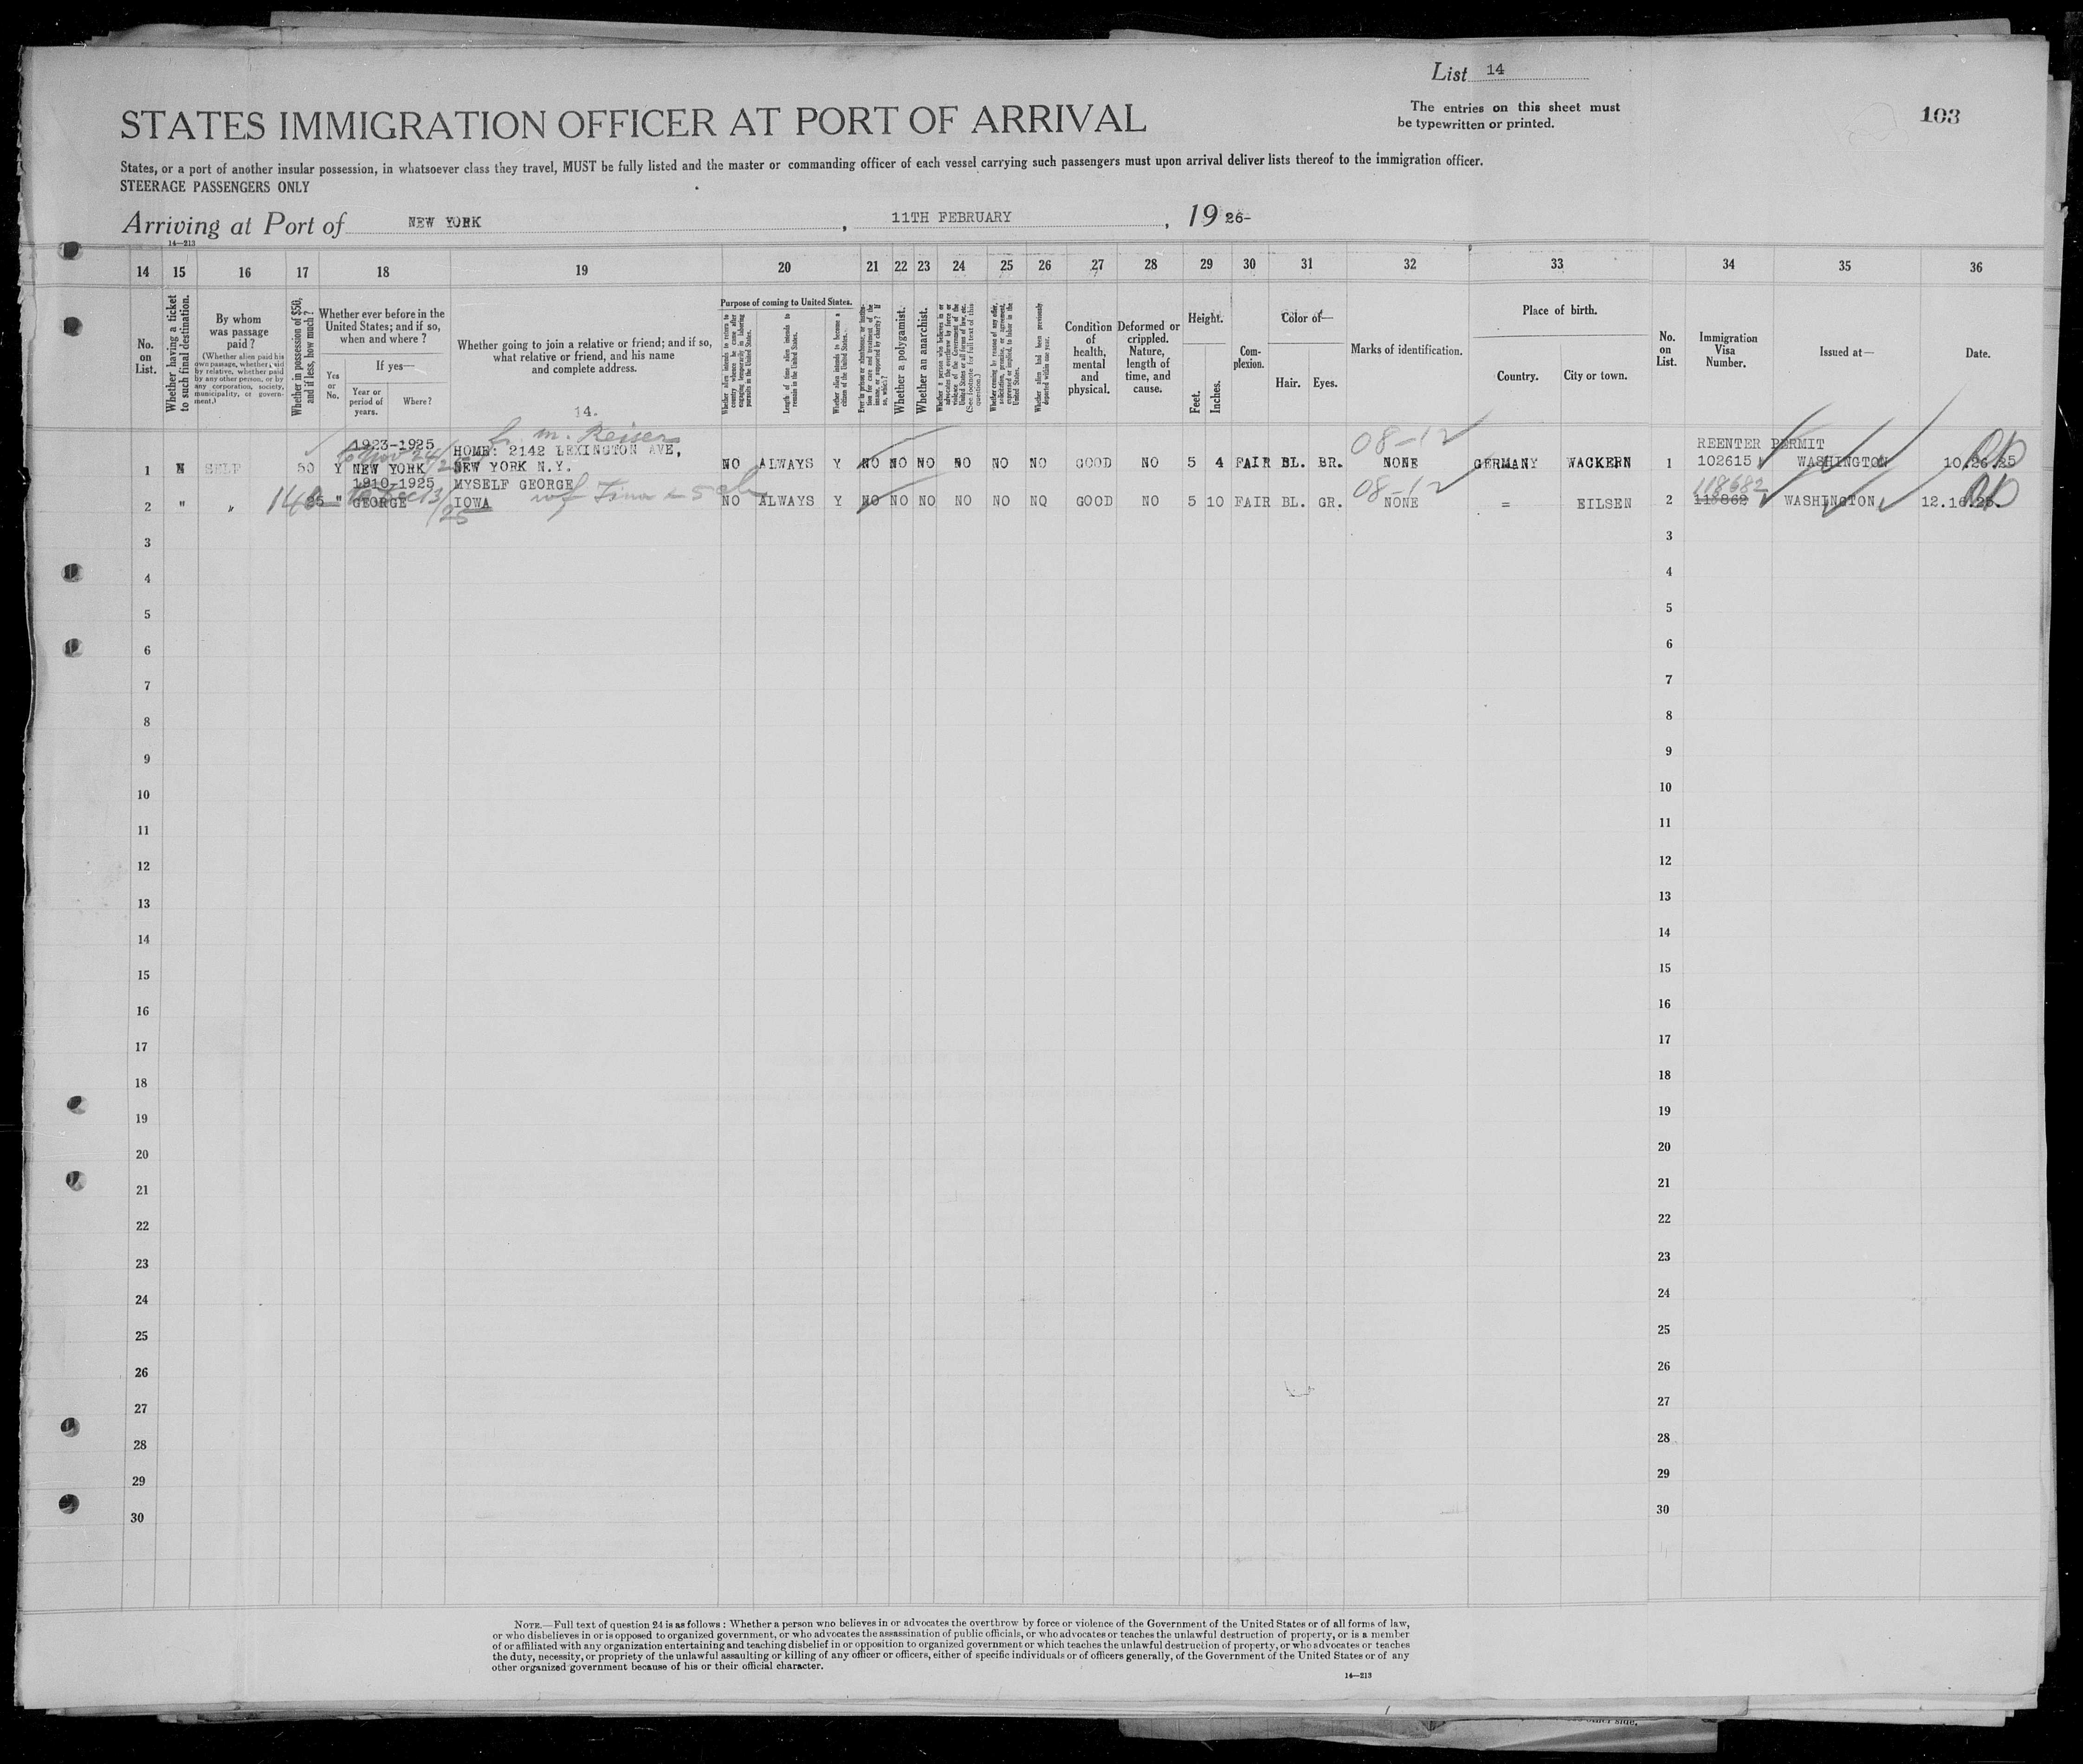 List 14
The entries on this sheet must
be typewritten or printed.
103
STATES IMMIGRATION OFFICER AT PORT OF ARRIVAL
States, or a port of another insular possession, in whatsoever class they travel, MUST be fully listed and the master or commanding officer of each vessel carrying such passengers must upon arrival deliver lists thereof to the immigration officer.
STEERAGE PASSENGERS ONLY
Arriving at Port of NEW YORK, 11TH FEBRUARY, 1926-
14—213
14 15 16 17 18 19 20 21 22 23 24 25 26 27 28 29 30 31 32 33 34 35 36
No. on List.
Whether having a ticket to such final destination.
By whom was passage paid?
(Whether alien paid his own passage, whether paid by relative, whether paid by any other person, or by any corporation, society, municipality, or government.)
Whether in possession of $50, and if less, how much?
Whether ever before in the United States; and if so, when and where?
Yes or No.
If yes—
Year or period of years.
Where?
Whether going to join a relative or friend; and if so, what relative or friend, and his name and complete address.
14.
Purpose of coming to United States.
Whether alien intends to return to country whence he came after engaging temporarily in laboring pursuits in the United States.
Length of time alien intends to remain in the United States.
Whether alien intends to become a citizen of the United States.
Ever in prison or almshouse, or institution for care and treatment of the insane, or supported by charity? If so, which?
Whether a polygamist.
Whether an anarchist.
Whether a person who believes in or advocates the overthrow by force or violence of the Government of the United States or all forms of law, etc. (See footnote for full text of this question.)
Whether coming by reason of any offer, solicitation, promise, or agreement, expressed or implied, to labor in the United States.
Whether alien had been previously deported within one year.
Condition of health, mental and physical.
Deformed or crippled. Nature, length of time, and cause.
Height.
Feet.
Inches.
Complexion.
Color of—
Hair.
Eyes.
Marks of identification.
Place of birth.
Country.
City or town.
No. on List.
Immigration Visa Number.
Issued at—
Date.
1923-1925 br. m. Reiser 08-12 REENTER PERMIT
to Nov 24/25 HOME: 2142 LEXINGTON AVE,
1 N SELF 50 Y NEW YORK NEW YORK N.Y. NO ALWAYS Y NO NO NO NO NO NO GOOD NO 5 4 FAIR BL. BR. NONE GERMANY WACKERN 1 102615 WASHINGTON 10.26.25
1910-1925 MYSELF GEORGE 08-12 118682
to Dec 13/25 wf
2 " " 25 " GEORGE IOWA NO ALWAYS Y NO NO NO NO NO NO GOOD NO 5 10 FAIR BL. GR. NONE = EILSEN 2 113862 WASHINGTON 12.16.25.
3 3
4 4
5 5
6 6
7 7
8 8
9 9
10 10
11 11
12 12
13 13
14 14
15 15
16 16
17 17
18 18
19 19
20 20
21 21
22 22
23 23
24 24
25 25
26 26
27 27
28 28
29 29
30 30
NOTE.—Full text of question 24 is as follows: Whether a person who believes in or advocates the overthrow by force or violence of the Government of the United States or of all forms of law,
or who disbelieves in or is opposed to organized government, or who advocates the assassination of public officials, or who advocates or teaches the unlawful destruction of property, or is a member
of or affiliated with any organization entertaining and teaching disbelief in or opposition to organized government or which teaches the unlawful destruction of property, or who advocates or teaches
the duty, necessity, or propriety of the unlawful assaulting or killing of any officer or officers, either of specific individuals or of officers generally, of the Government of the United States or of any
other organized government because of his or their official character.
14—213
other side.